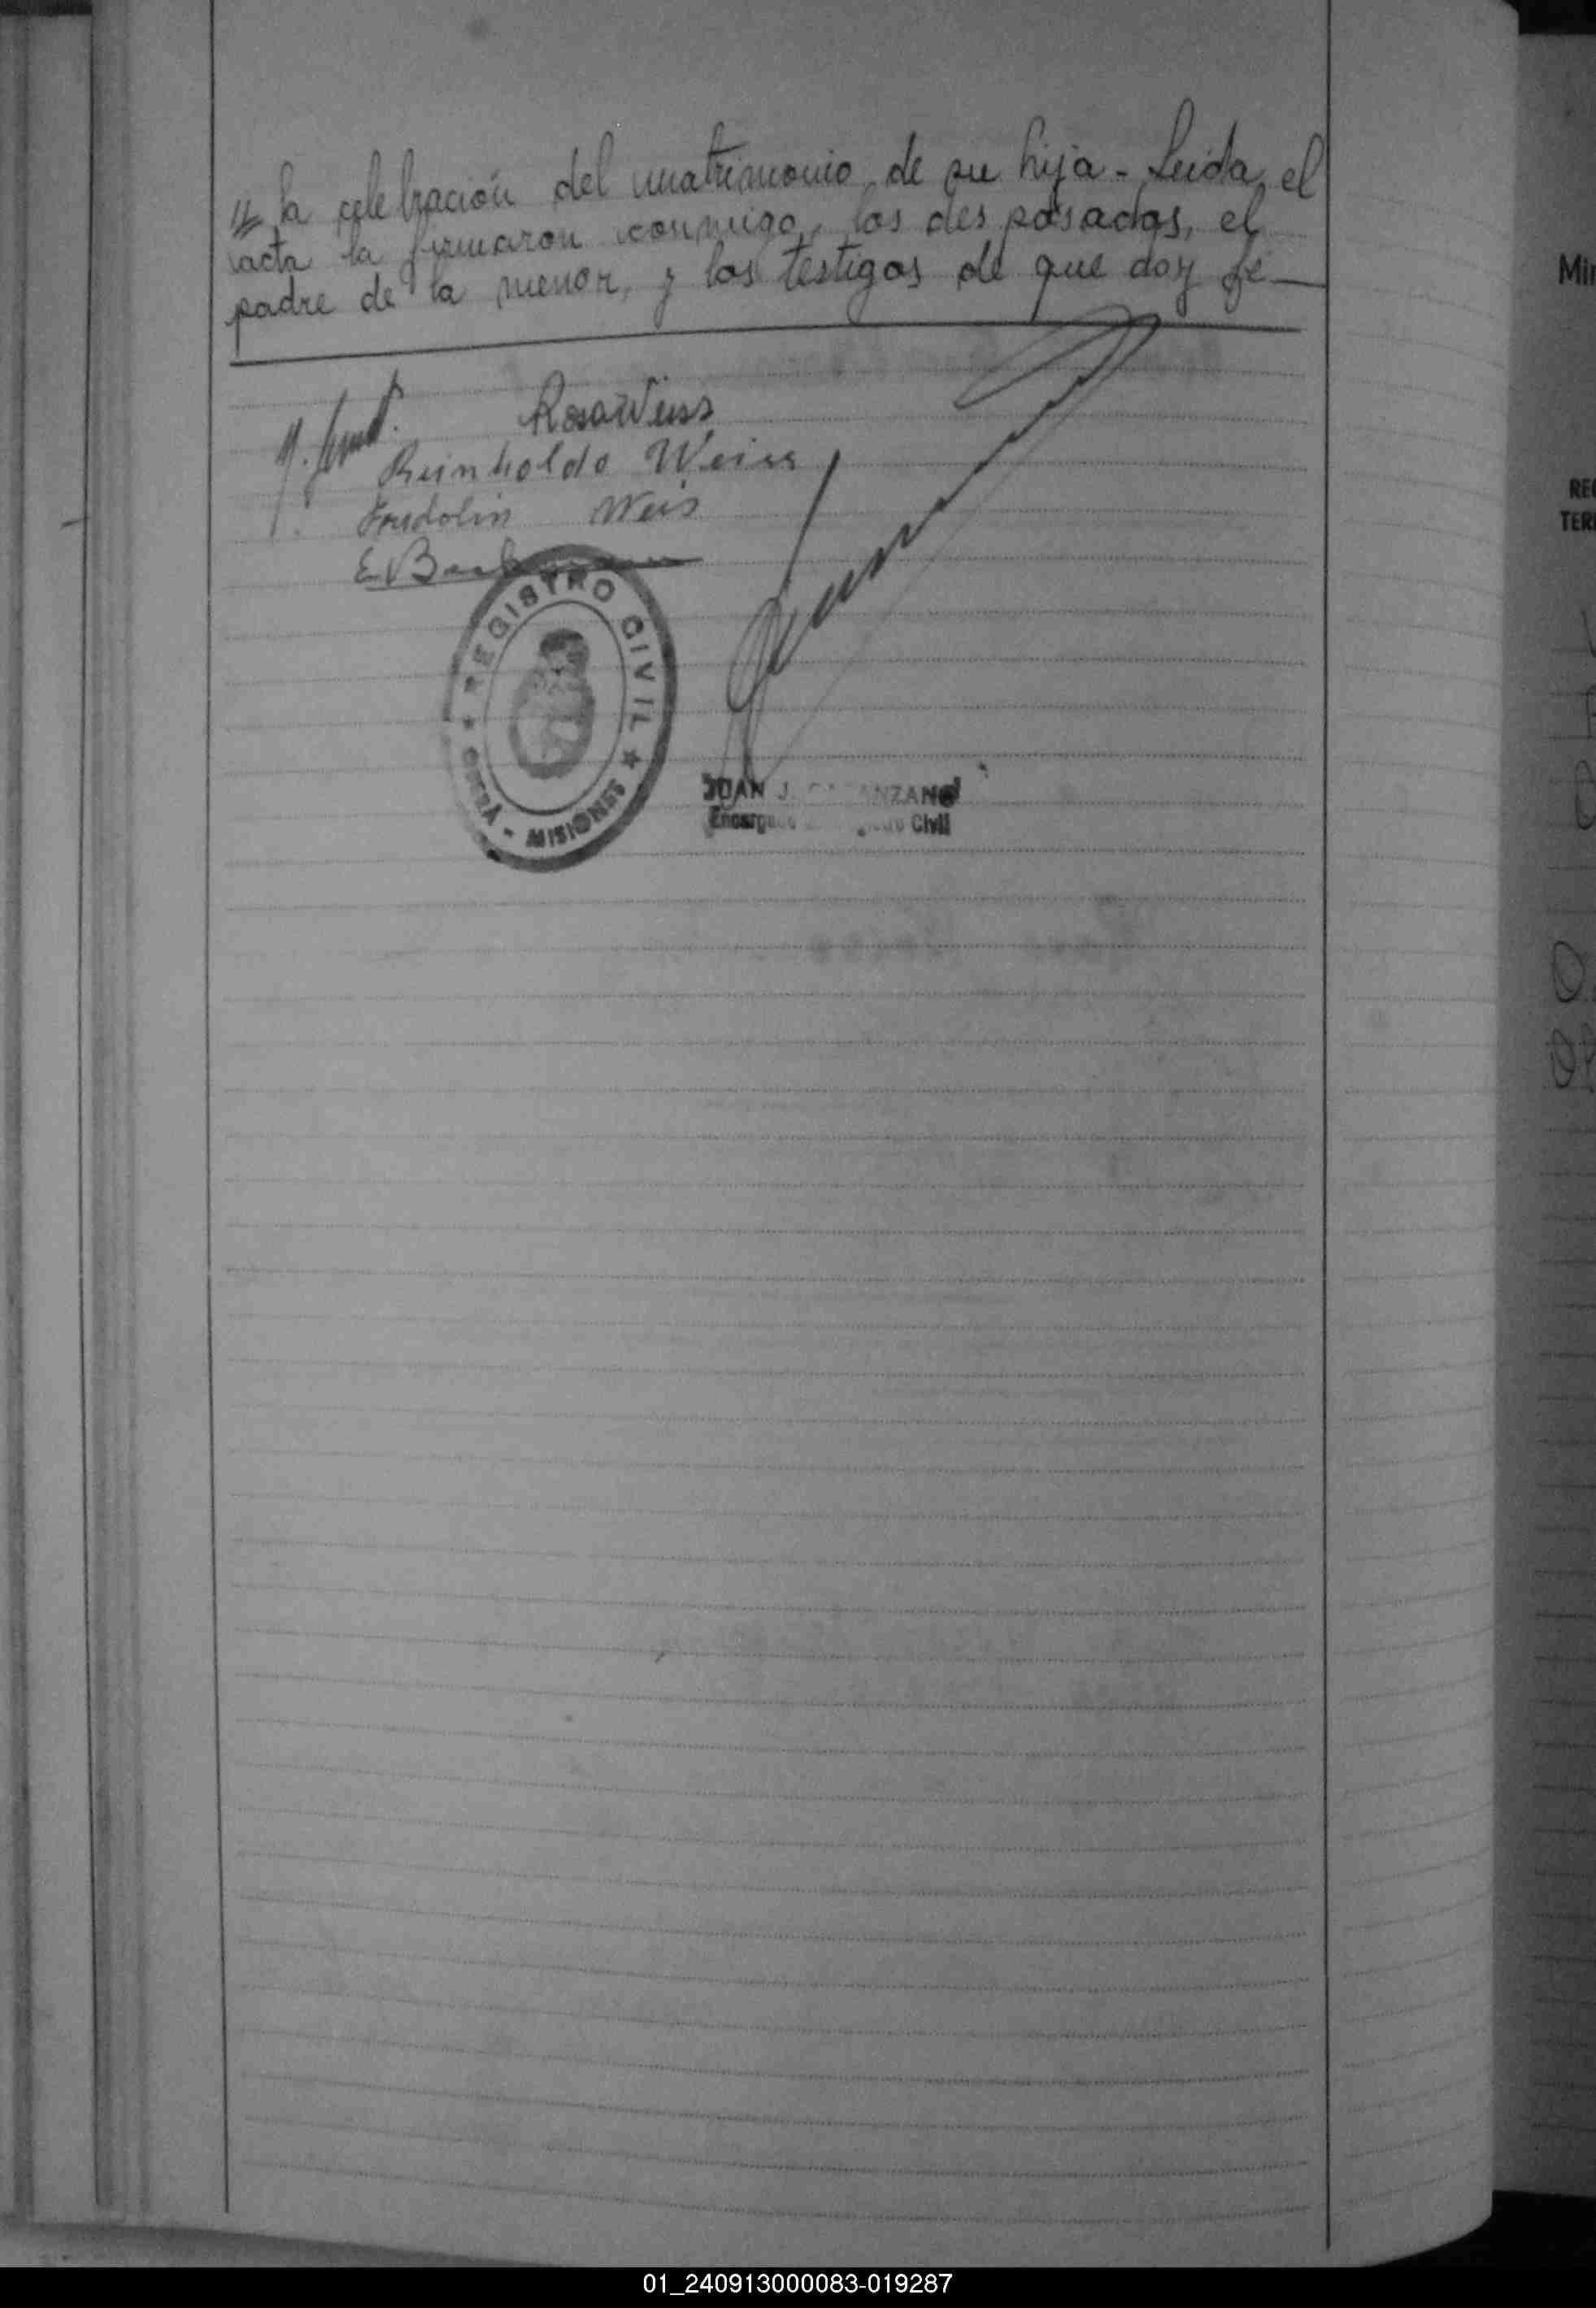 // la celebración del matrimonio de su hija - Leida el
acta la firmaron conmigo, los desposados, el
padre de la menor, y los testigos de que doy fé
Rosa Weiss
Reinholdo Weiss
Fridolin Weis
REGISTRO CIVIL
OBERÁ - MISIONES
JUAN J.
Civil
Min
REG
TERR
01_240913000083-019287